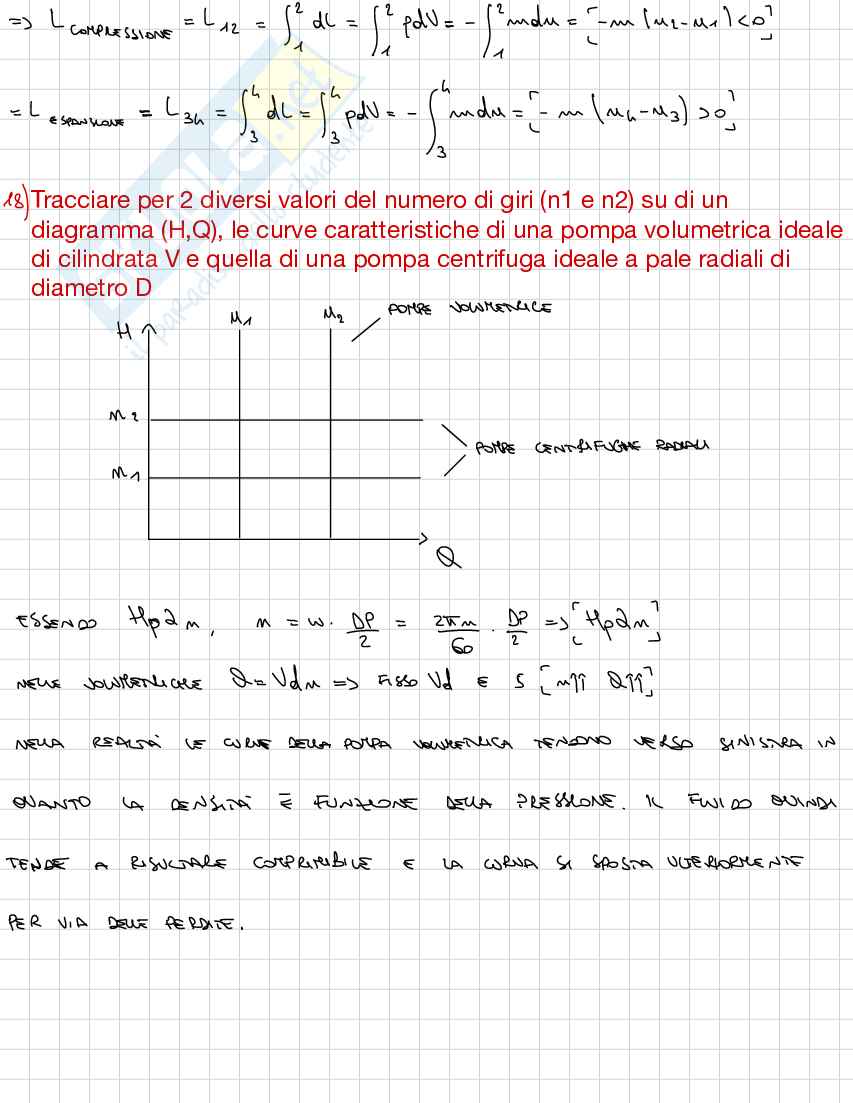 => L COMPRESSIONE = L12 = ∫₁² dL = ∫₁² pdV = - ∫₁² mdu = [-m (u2-u1) <0]
= L ESPANSIONE = L34 = ∫₃⁴ dL = ∫₃⁴ pdV = - ∫₃⁴ mdu = [-m (u4-u3) >0]
18) Tracciare per 2 diversi valori del numero di giri (n1 e n2) su di un
diagramma (H,Q), le curve caratteristiche di una pompa volumetrica ideale
di cilindrata V e quella di una pompa centrifuga ideale a pale radiali di
diametro D
H n1 n2 POMPE VOLUMETRICHE
n2
POMPE CENTRIFUGHE RADIALI
n1
Q
ESSENDO Hp∂n, u = w · DP/2 = 2πn/60 · DP/2 => [Hp∂n]
NELLE VOLUMETRICHE Q = Vdn => FISSO Vd E S [n↑↑ Q↑↑]
NELLA REALTÀ LE CURVE DELLA POMPA VOLUMETRICA TENDONO VERSO SINISTRA IN
QUANTO LA DENSITÀ È FUNZIONE DELLA PRESSIONE. IL FLUIDO QUINDI
TENDE A RISULTARE COMPRIMIBILE E LA CURVA SI SPOSTA ULTERIORMENTE
PER VIA DELLE PERDITE.